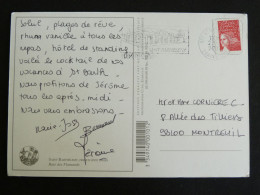 Soleil, plages de rêve,
rhum vanille à tous les
repas, hôtel de standing
voilà le cocktail de nos
vacances à St Barth.
Nous profitons de Jérôme
tous les après-midi.
Nous vous embrassons
Marie-Jo
Jérôme
Mr et Mme CORNIERE C.
8 Allée des Tilleuls
93100 MONTREUIL